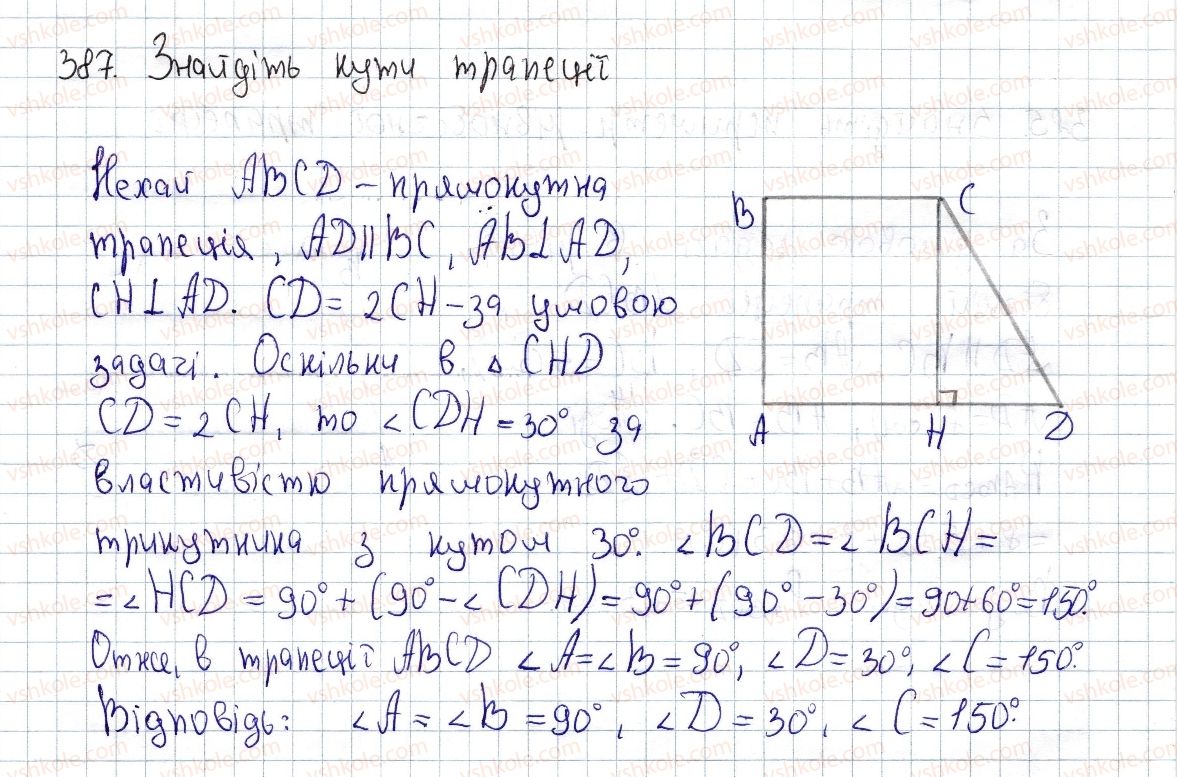 387. Знайдіть кути трапеції
Нехай ABCD – прямокутна
трапеція, AD||BC, AB⊥AD,
CH⊥AD. CD = 2CH – за умовою
задачі. Оскільки в △ CHD
CD = 2CH, то ∠CDH = 30° за
властивістю прямокутного
трикутника з кутом 30°. ∠BCD = ∠BCH =
= ∠HCD = 90° + (90° - ∠CDH) = 90° + (90° - 30°) = 90 + 60° = 150°.
Отже, в трапеції ABCD ∠A = ∠B = 90°, ∠D = 30°, ∠C = 150°.
Відповідь: ∠A = ∠B = 90°, ∠D = 30°, ∠C = 150°.
B C
A H D
vshkole.com